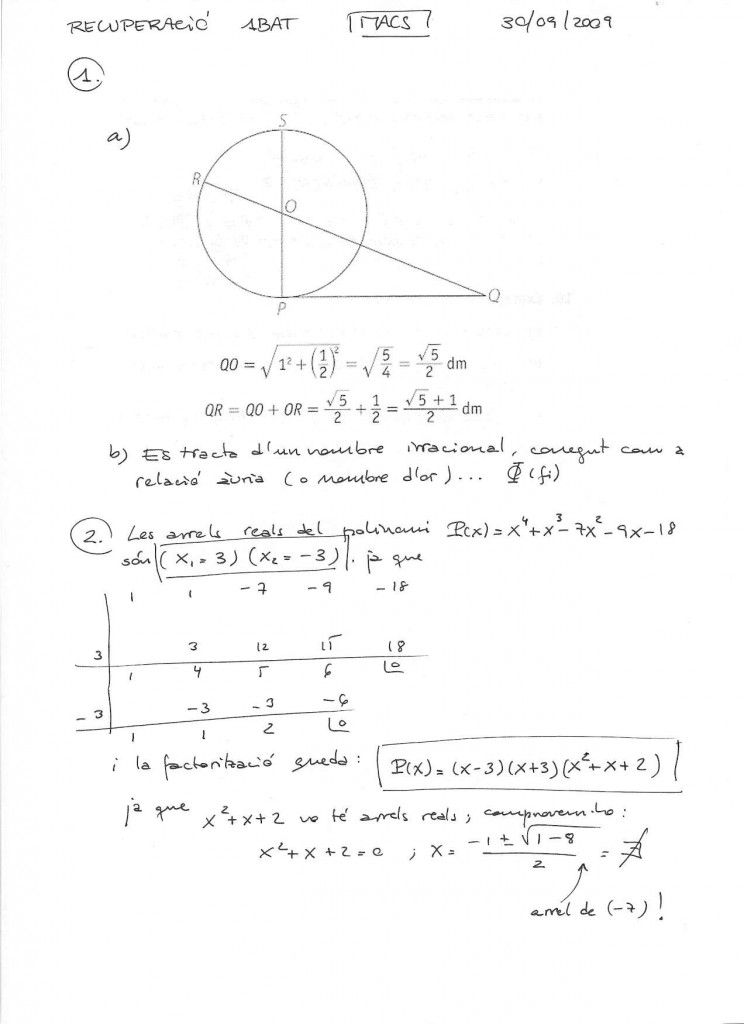 RECUPERACIÓ 1BAT MACS 30/09/2009
1.
a)
S
R
O
P
Q
QO = √(1² + (1/2)²) = √(5/4) = √5/2 dm
QR = QO + OR = √5/2 + 1/2 = (√5 + 1)/2 dm
b) Es tracta d'un nombre irracional, conegut com a
relació àuria (o nombre d'or)... Φ (fi)
2. Les arrels reals del polinomi P(x) = x⁴ + x³ - 7x² - 9x - 18
són (x₁ = 3) (x₂ = -3). ja que
1 1 -7 -9 -18
3 3 12 15 18
1 4 5 6 0
-3 -3 -3 -6
1 1 2 0
i la factorització queda: P(x) = (x-3)(x+3)(x²+x+2)
ja que x²+x+2 no té arrels reals; comprovem-ho:
x²+x+2=0 ; x = (-1 ± √(1-8))/2 = ∄
arrel de (-7)!